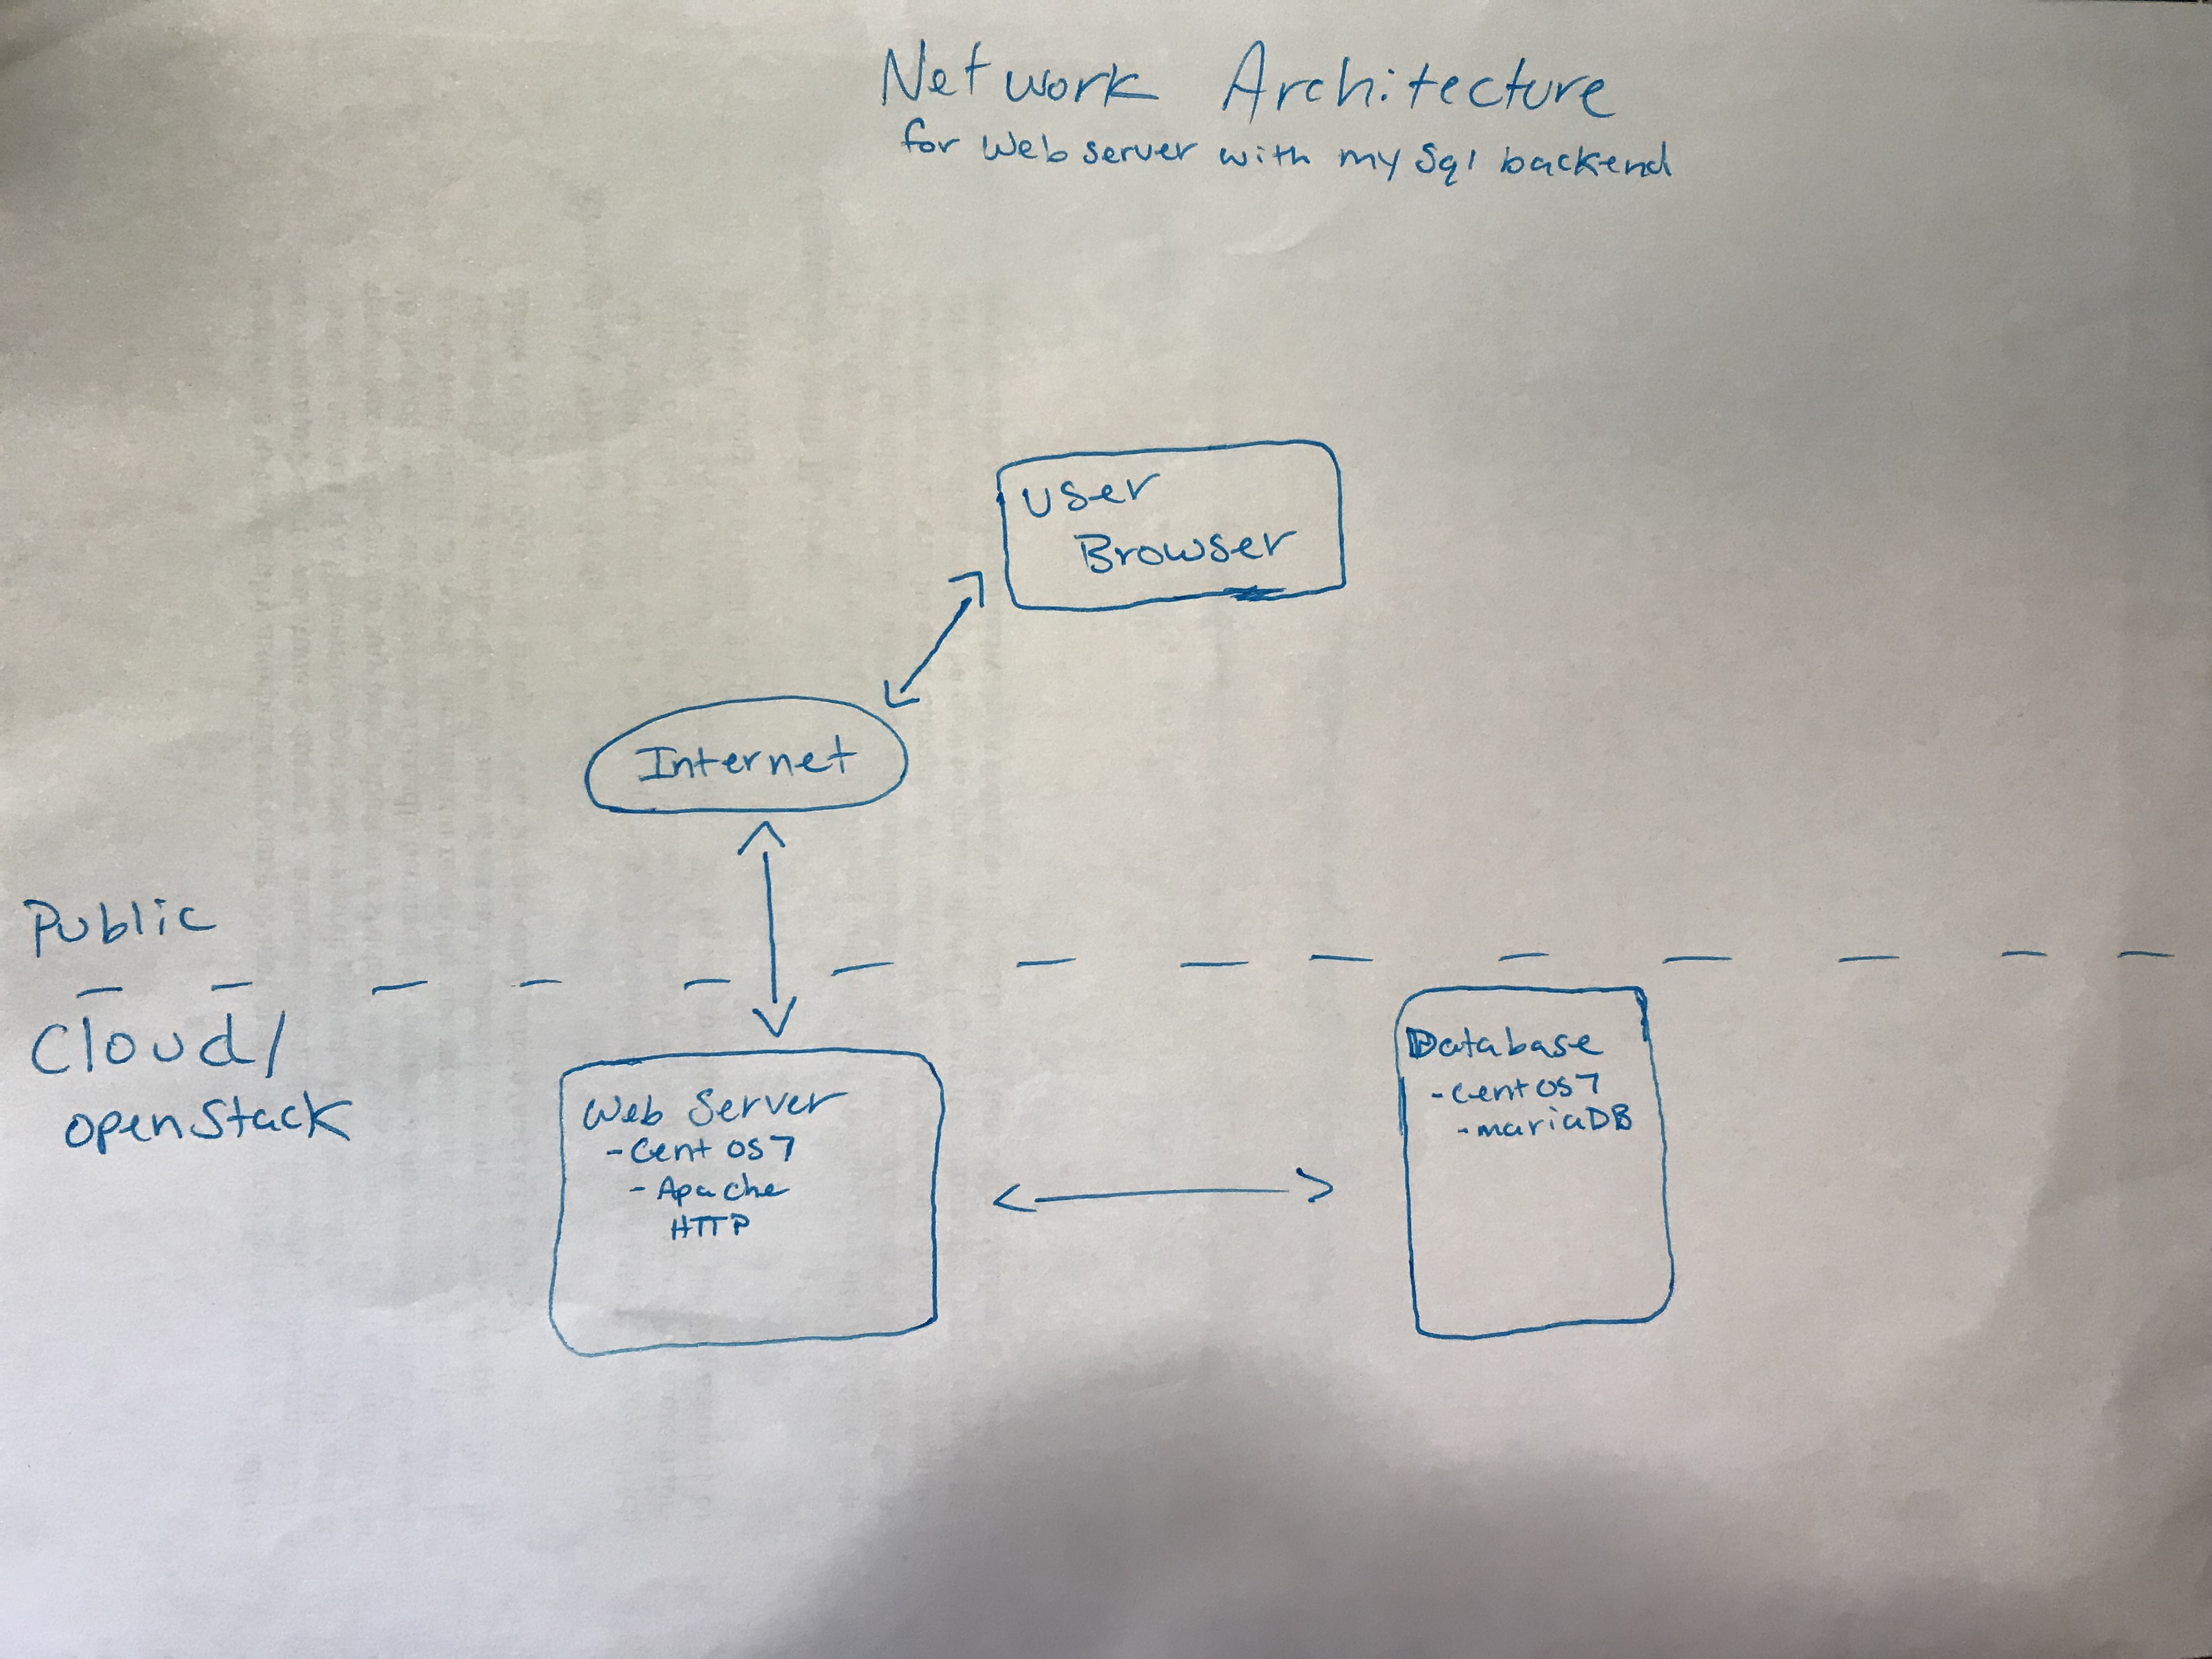 Network Architecture
for Web server with mySql backend
User
Browser
Internet
Public
Cloud/
openStack
Web Server
- Cent OS 7
- Apache
HTTP
Database
- Cent OS 7
- mariaDB